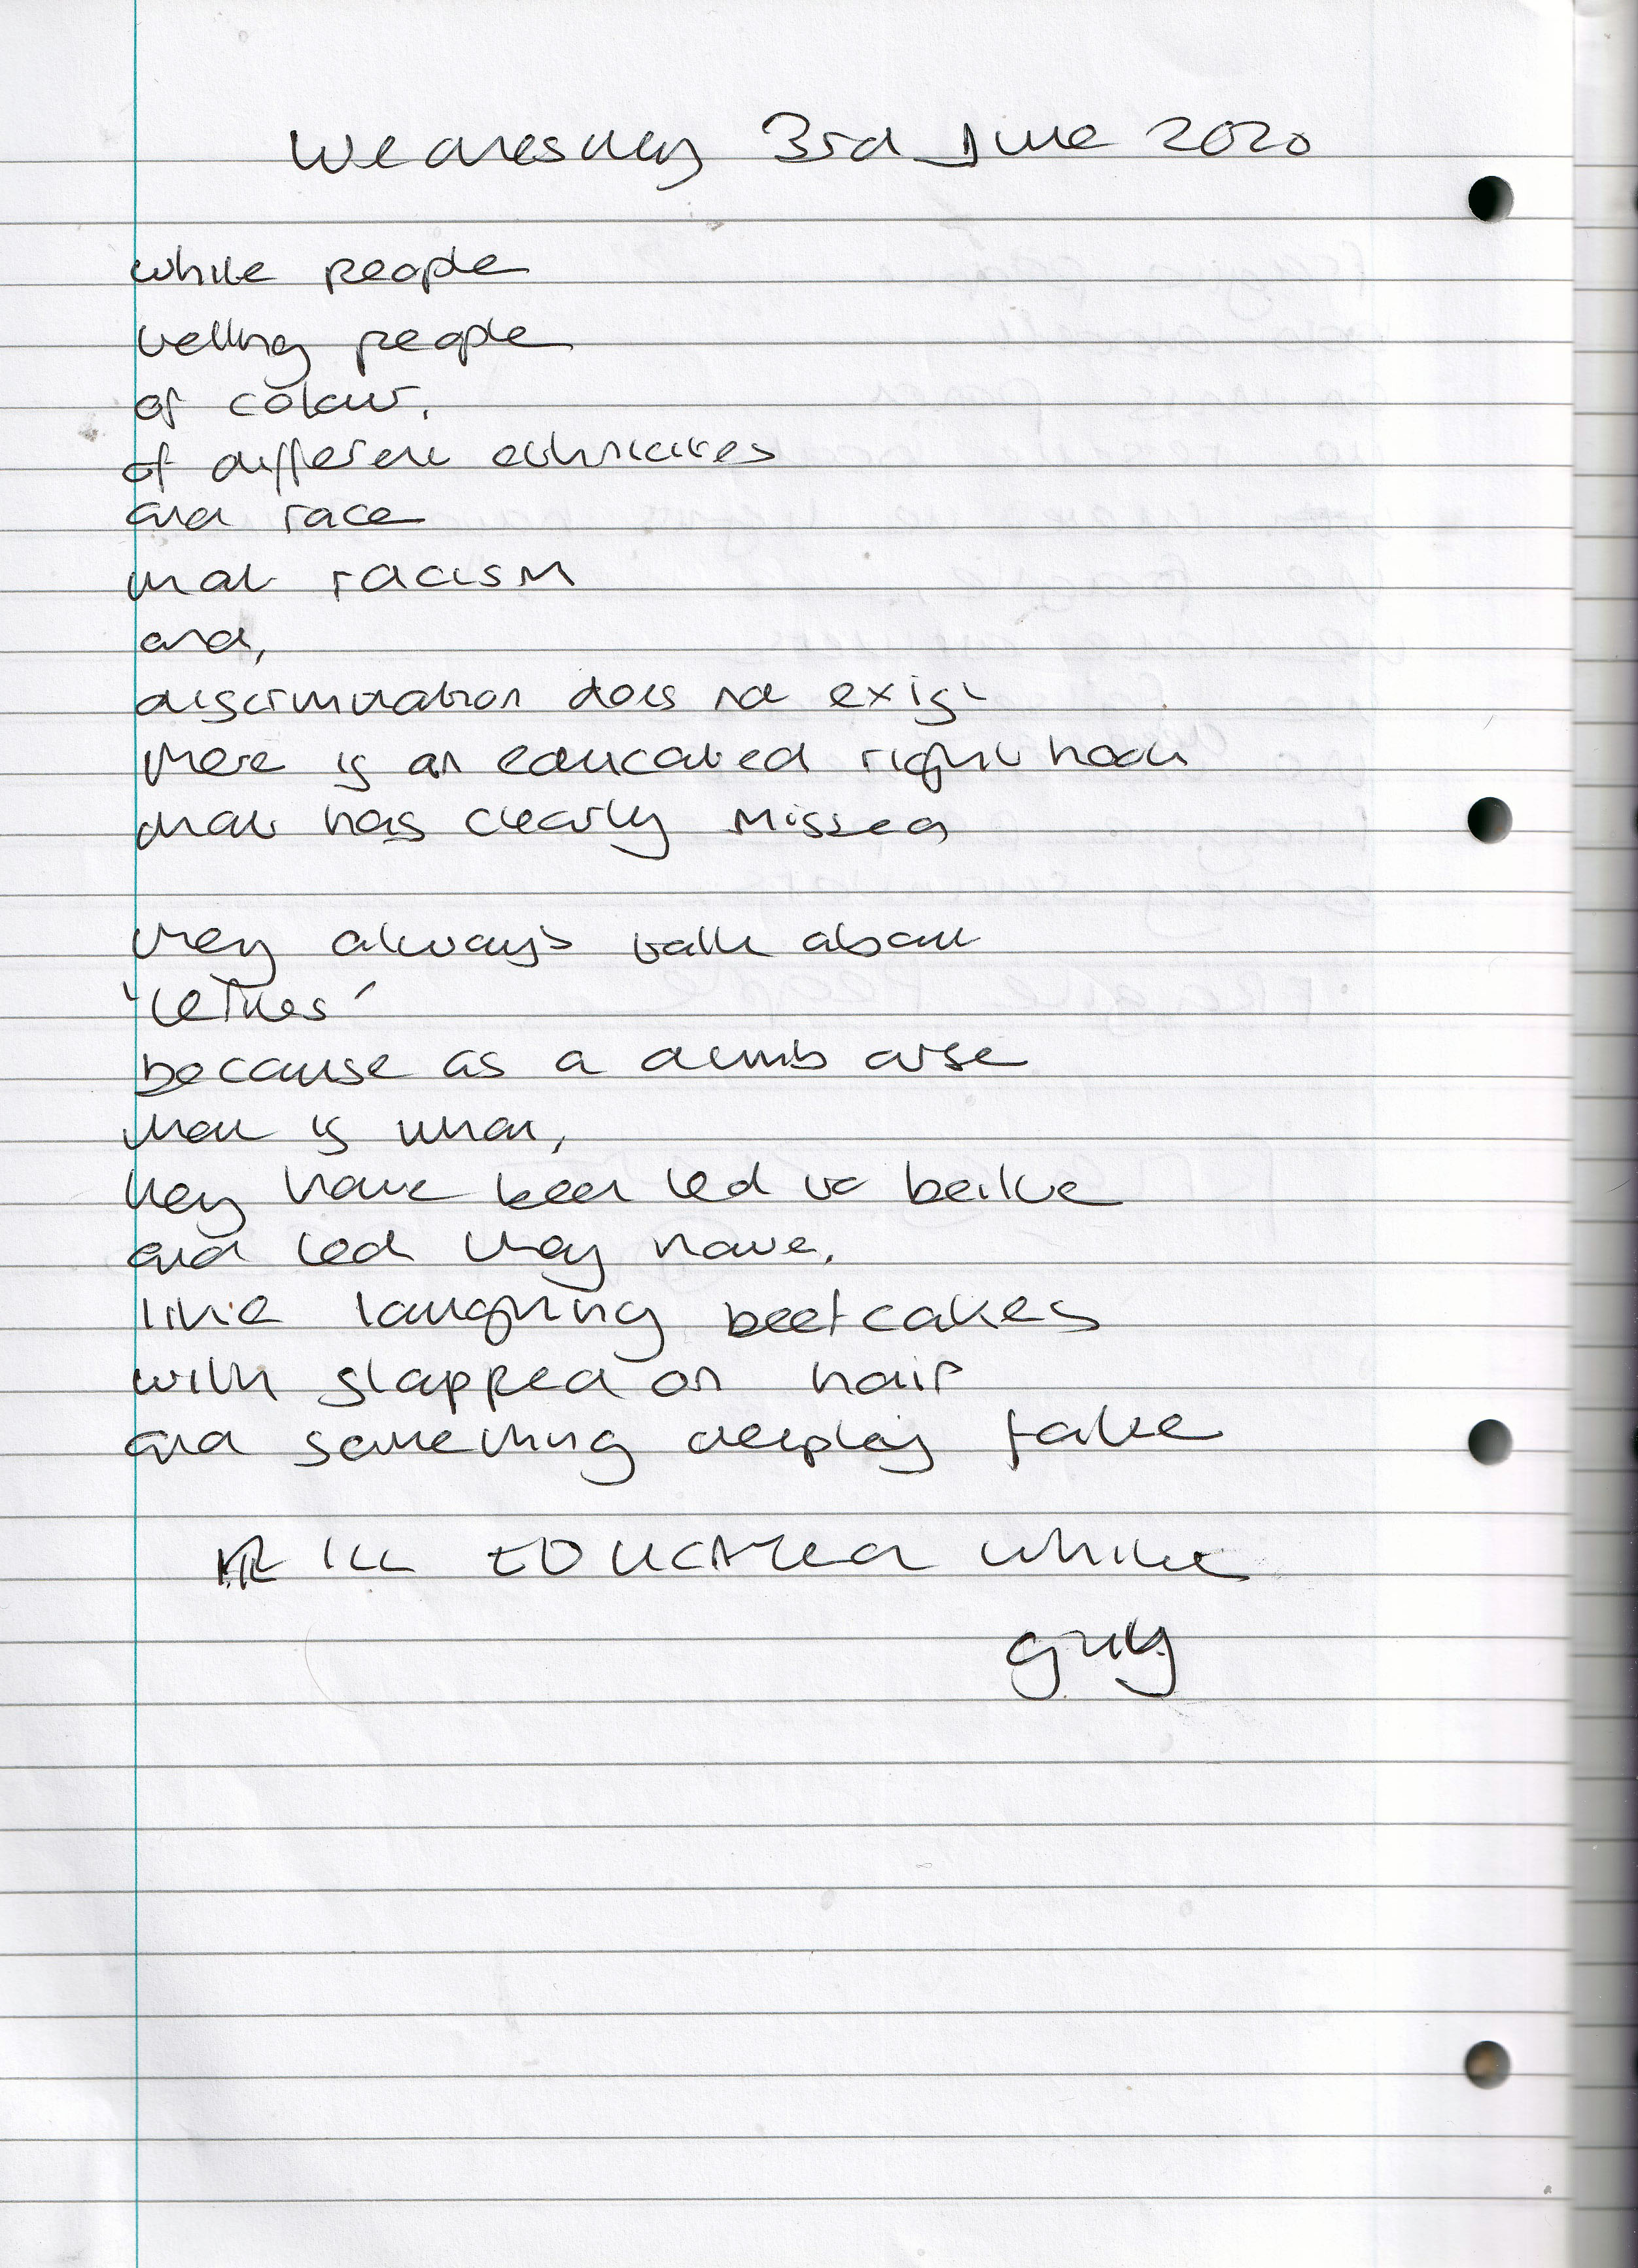 Wednesday 3rd June 2020
white people
telling people
of colour.
of different ethnicities
and race
that racism
and,
discrimination does not exist
there is an educated right hook
that has clearly missed
they always talk about
'lefties'
because as a dumb arse
that is what,
they have been led to beilve
and led they have.
like laughing beefcakes
with slapped on hair
and something deeply fake
ILL EDUCATED white
guy